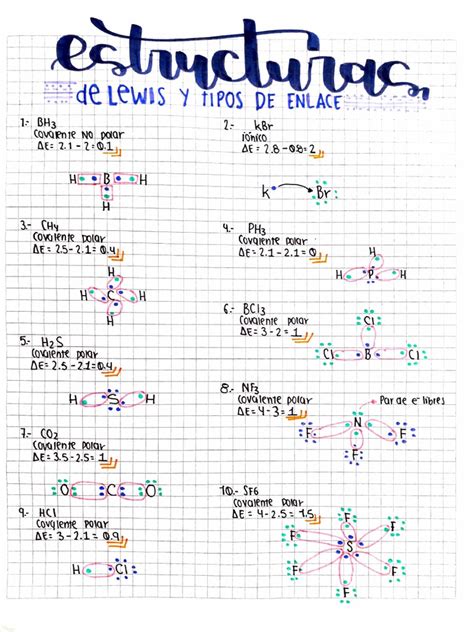 estructuras
de Lewis y tipos de enlace
1.- BH3
Covalente no polar
ΔE= 2.1 - 2= 0.1
H B H
H
2.- kBr
iónico
ΔE= 2.8 - 0.8= 2
k Br
3.- CH4
Covalente polar
ΔE= 2.5 - 2.1= 0.4
H
H C H
H
4.- PH3
Covalente polar
ΔE= 2.1 - 2.1= 0
H
H P H
5.- H2S
Covalente polar
ΔE= 2.5 - 2.1= 0.4
H S H
6.- BCl3
Covalente polar
ΔE= 3 - 2= 1
Cl
Cl B Cl
7.- CO2
Covalente polar
ΔE= 3.5 - 2.5= 1
O C O
8.- NF3
Covalente polar
ΔE= 4 - 3= 1
Par de e- libres
N
F F F
9.- HCl
Covalente polar
ΔE= 3 - 2.1= 0.9
H Cl
10.- SF6
Covalente polar
ΔE= 4 - 2.5= 1.5
F
F F
S
F F
F